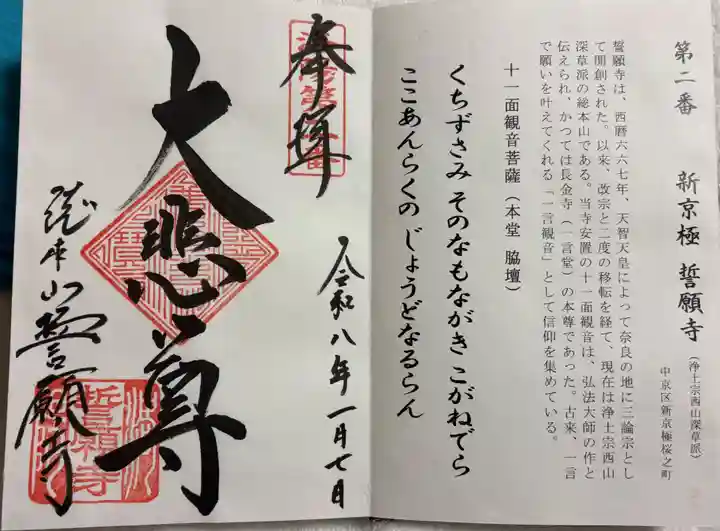 第二番 新京極 誓願寺（浄土宗西山深草派）
中京区新京極桜之町
誓願寺は、西暦六六七年、天智天皇によって奈良の地に三論宗とし
て開創された。以来、改宗と二度の移転を経て、現在は浄土宗西山
深草派の総本山である。当寺安置の十一面観音は、弘法大師の作と
伝えられ、かつては長金寺（一言堂）の本尊であった。古来、一言
で願いを叶えてくれる「一言観音」として信仰を集めている。
十一面観音菩薩（本堂 脇壇）
くちずさみ そのなもながき こがねでら
ここあんらくの じょうどなるらん
奉拝
令和八年一月七日
大悲尊
総本山誓願寺
誓願寺